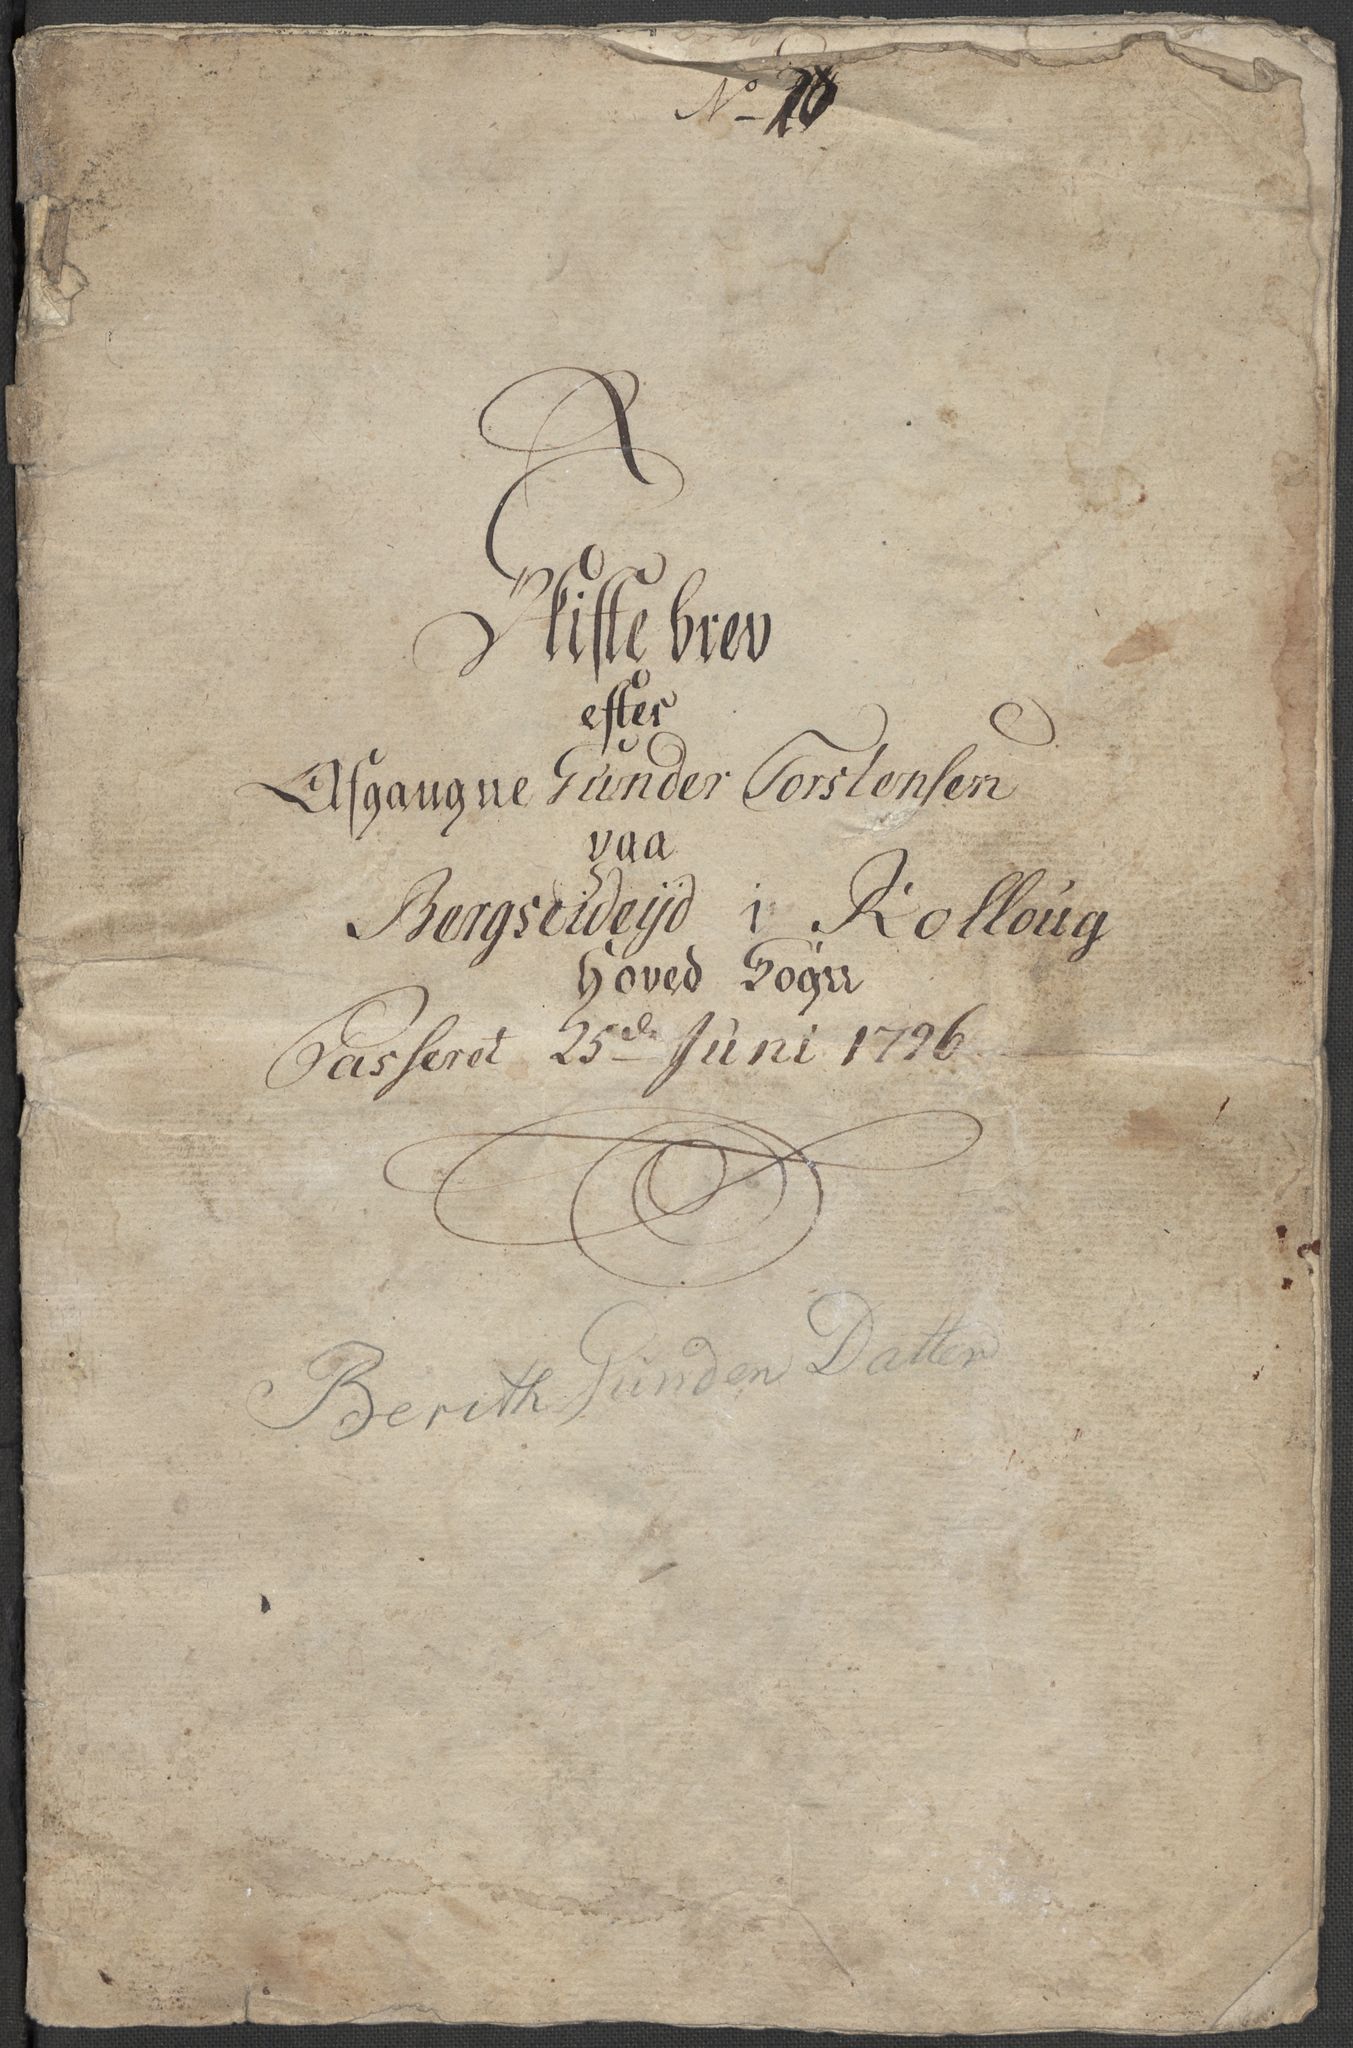 No 20
Skifte brev
efter
Afgangne Gunder Torstensen
paa
Bergseideijd i Rolloug
Hoved Sogn
Passeret 25de Juni 1796
Berith Gunder Datter